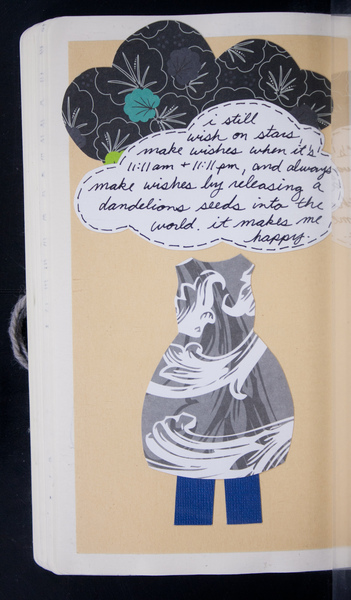 i still
wish on stars,
make wishes when it's
11:11 am + 11:11 pm, and always
make wishes by releasing a
dandelions seeds into the
world. it makes me
happy.